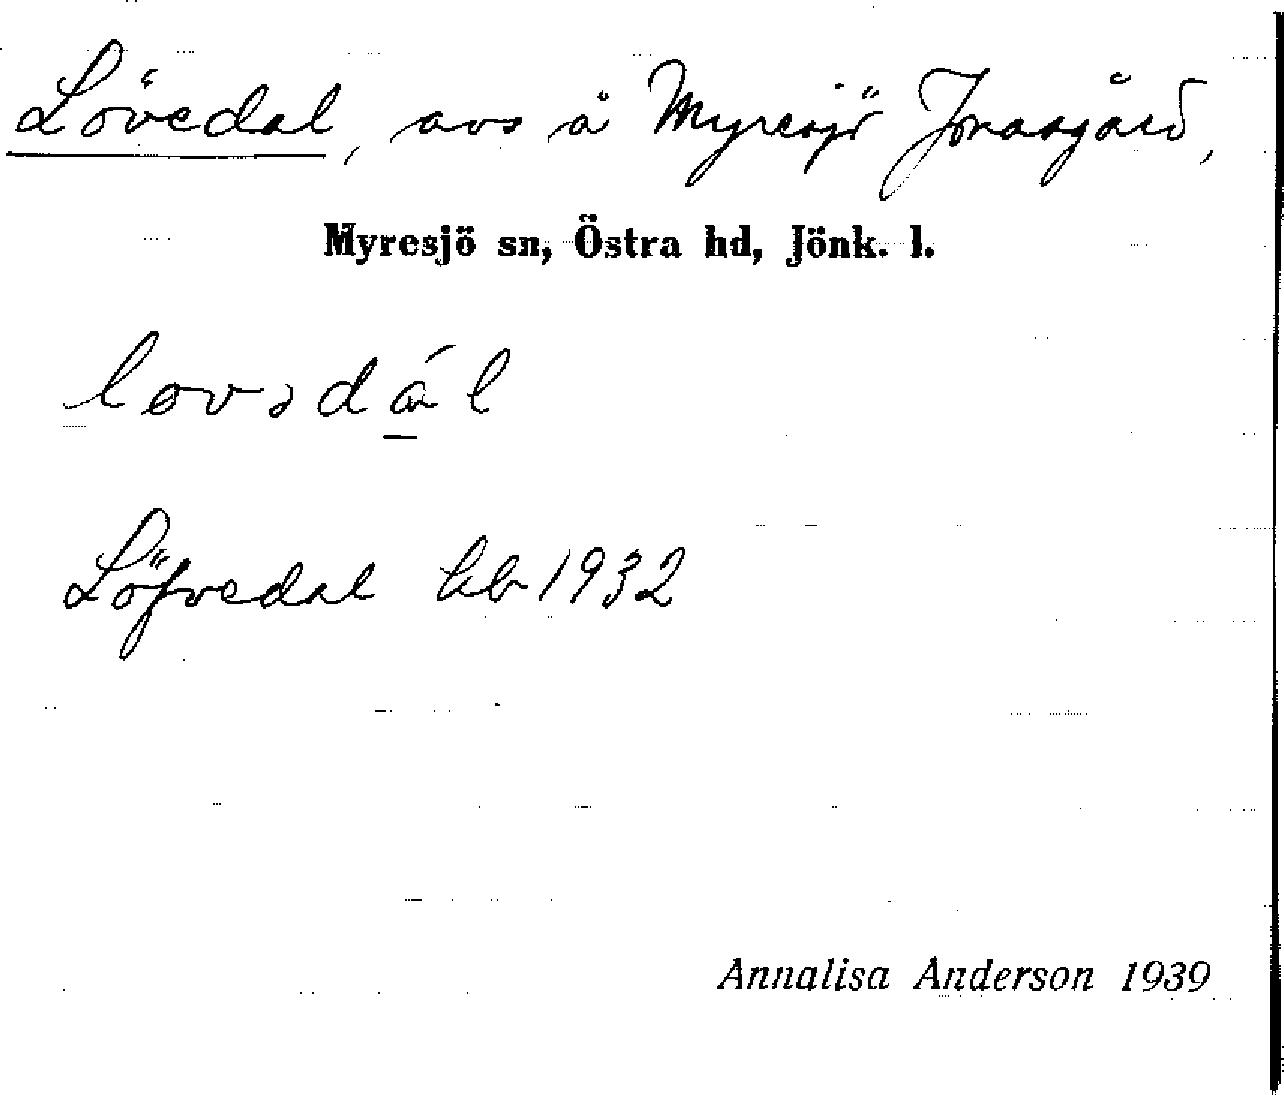 Lövedal, avs å Myresjö Jonasgård,
Myresjö sn, Östra hd, Jönk. l.
løvədál
Löfvedal hb 1932
Annalisa Anderson 1939